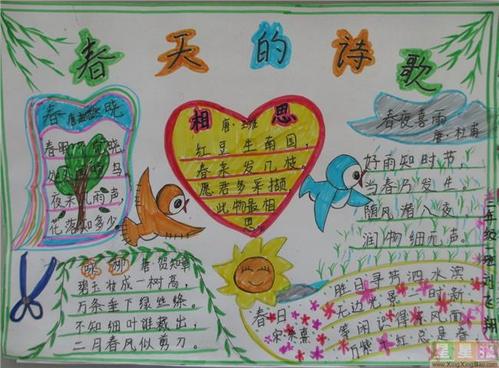 春天的诗歌
春晓
夜来风雨声
花落知多少
相思
唐·王维
红豆生南国,
春来发几枝,
愿君多采撷
此物最相
思
春夜喜雨
唐·杜甫
好雨知时节,
当春乃发生。
随风潜入夜
润物细无声。
咏柳 唐 贺知章
碧玉妆成一树高,
万条垂下绿丝绦.
不知细叶谁裁出,
二月春风似剪刀.
春日
宋·朱熹
胜日寻芳泗水滨
无边光景一时新,
等闲识得东风面
万紫千红总是春
三年级
www.XingXingBao.com